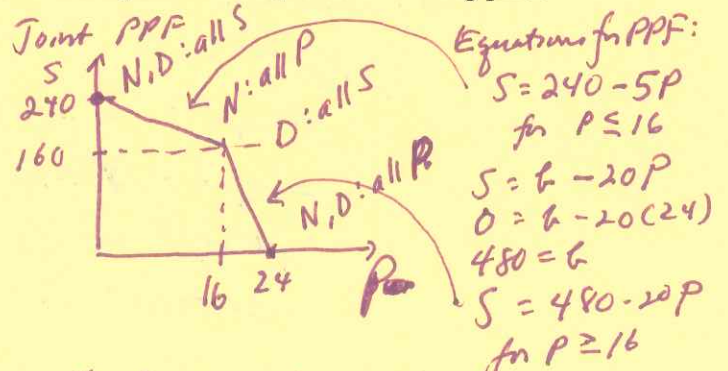 Joint PPF
S
N,D: all S
N: all P
D: all S
N,D: all P
240
160
16 24
P
Equations for PPF:
S = 240 - 5P
for P ≤ 16
S = b - 20P
0 = b - 20(24)
480 = b
S = 480 - 20P
for P ≥ 16